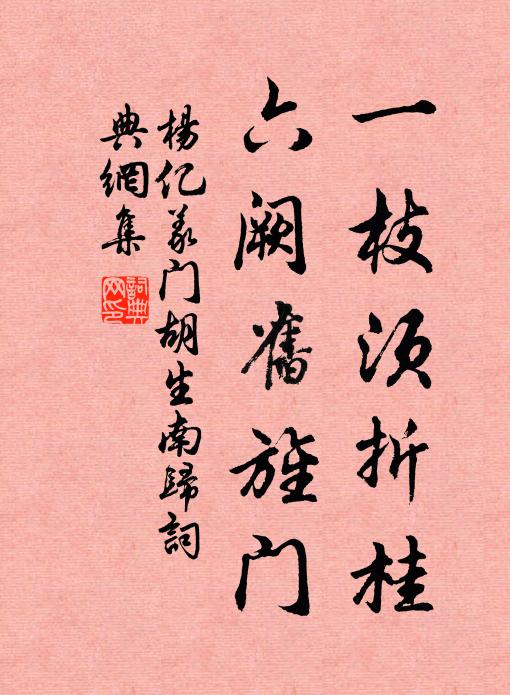 一枝须折桂
六阙舊旌门
楊亿义门胡生南歸詞
典網集
詞典网印